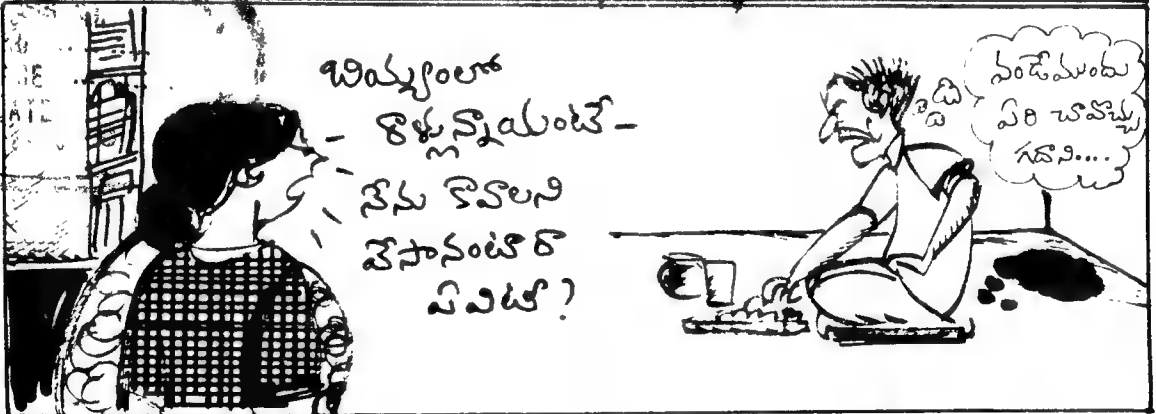 బియ్యంలో
రాళ్లున్నాయంటే-
నేను కావాలని
వేసానంటారా
ఏవిటీ?
వండేముందు
ఏరి చావొచ్చు
గదాని....